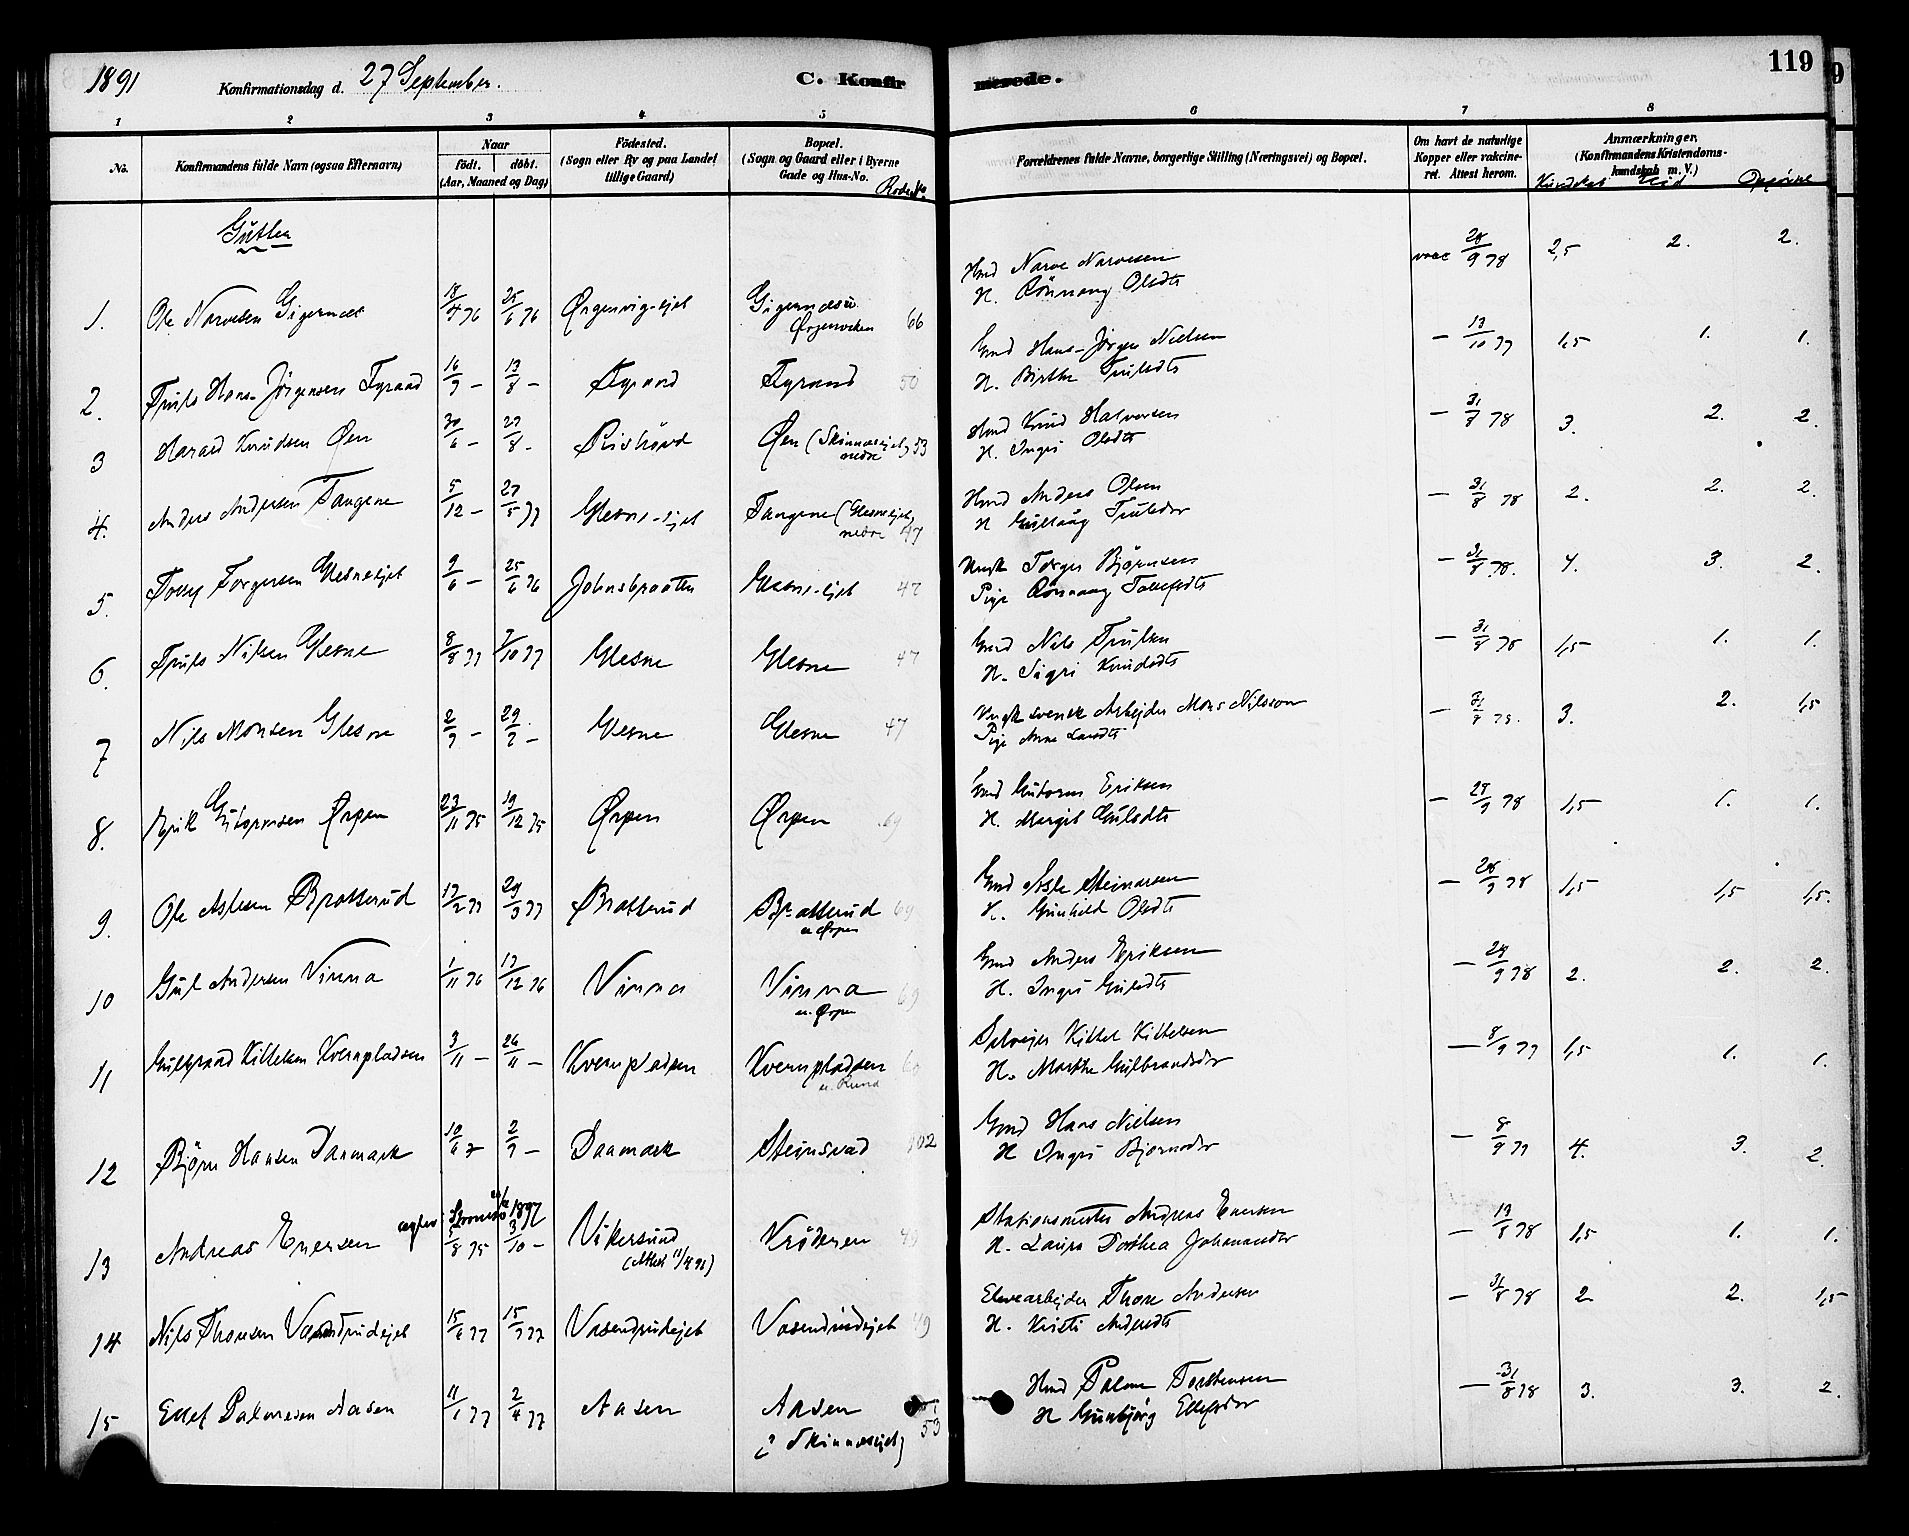 1891 Konfirmationsdag d. 27 September. C. Konfirmerede. 119
1 2 3 4 5 6 7 8
No.
Konfirmandens fulde Navn (ogsaa Efternavn)
Naar
födt. döbt.
(Aar, Maaned og Dag)
Födested.
(Sogn eller By og paa Landet
tillige Gaard)
Bopæl.
(Sogn og Gaard eller i Byerne
Gade og Hus-No.
Forældrenes fulde Navne, borgerlige Stilling (Næringsvei) og Bopæl.
Om havt de naturlige
Kopper eller vakcine-
ret. Attest herom.
Anmærkninger.
(Konfirmandens Kristendoms-
kundskab m. V.)
Kundskab Flid Opførsel
Gutter
1. Ole Narvesen 18/4 76 25/6 76 Ørgenvig-ejet 66
Narve Narvesen
H. Rönnaug Olsdt
vacc 28/9 78 2,5 2. 2.
2. Truls Hans-Jörgensen Tyraad 16/9 — 13/8 — Tyraad Tyraad 50
Gmd Hans-Jörgen Nielsen
H. Birthe Trulsdt
— 13/10 77 1,5 1. 1.
3 Harald Knudsen Øen 30/6 — 27/8 — Øen (Skinnesejet, nedre 53
Hmd Knud Halvorsen
H. Ingri Olsdt
— 31/8 78 3. 2. 2.
4. Anders Andersen Tangene 5/12 — 27/5 77 Glesne-ejet Tangene (Glesneejet, nedre 47
Hmd Anders Olsen
H Gullaug Trulsdr
— 31/8 78 2. 2. 2.
5. Torgersen Glesneejet 9/6 — 25/6 76 Johnsbraatten Glesne-ejet 47
Ungk Torger Björnsen
Pige Rönnaug Tollefsdt
— 31/8 78. 4. 3. 2.
6. Truls Nilsen Glesne 8/8 77 7/10 77 Glesne Glesne 47
Gmd Nils Trulsen
H. Sigri Knudsdt
— 31/8 78 1,5 1. 1.
7 Nils Monsen Glesne 2/9 — 29/2 — Glesne Glesne 47
Ungk svensk Arbejder Mons Nilsson
Pige Anne Larsdt
— 31/8 78. 3. 2. 1,5
8. Erik Gutormsen Ørpen 23/11 75 19/12 75 Ørpen Ørpen 69
Gmd Gutorm Eriksen
H. Margit Gulsdt
— 28/9 78 1,5 1. 1.
9. Ole Aslesen Bratterud 17/2 77 29/3 77 Bratterud Bratterud u. Ørpen 69
Gmd Asle Steinarsen
H. Gunhild Olsdt
— 28/9 78 1,5 1,5 1,5.
10 Gul Andersen Vinna 1/11 76 17/12 76 Vinna Vinna u. Ørpen 69
Gmd Anders Eriksen
H. Ingri Gulsdt
— 28/9 78 2. 2. 2.
11 Gulbrand Kittelsen Kvernpladsen 3/11 — 26/11 — Kvernpladsen Kvernpladsen
Selvejer Kittel Kittelsen
H. Marthe Gulbrandsdr
— 8/9 77 1,5 1. 1.
12 Björn Hansen Danmark 10/6 77 2/9 — Danmark Steinsrud 102
Gmd Hans Nielsen
H Ingri Bjørnsdr
— 8/9 77 4. 3. 2.
13 Andreas Enersen 8 75 3/10 — Vikersund (Attest 11/4 91) Krøderen
Stationsmester Andreas Enersen
H. Laura Dorthea Johannesdr
— 13/8 78 1,5 1. 1.
14 Nils Thorsen Vasendrudejet 15/6 77 15/7 77 Vasendrudejet Vasendrudejet 49
Elvearbejder Thore Andersen
H. Kristi Andersdt
— 31/8 78 2 2. 1,5
15 Ellef Palmesen Aasen 11/1 77 2/4 77 Aasen Aasen (Skinnesejet) 53
Hmd Palme Torstensen
H Gunbjörg Ellefsdr
— 31/8 78 3. 3. 2.